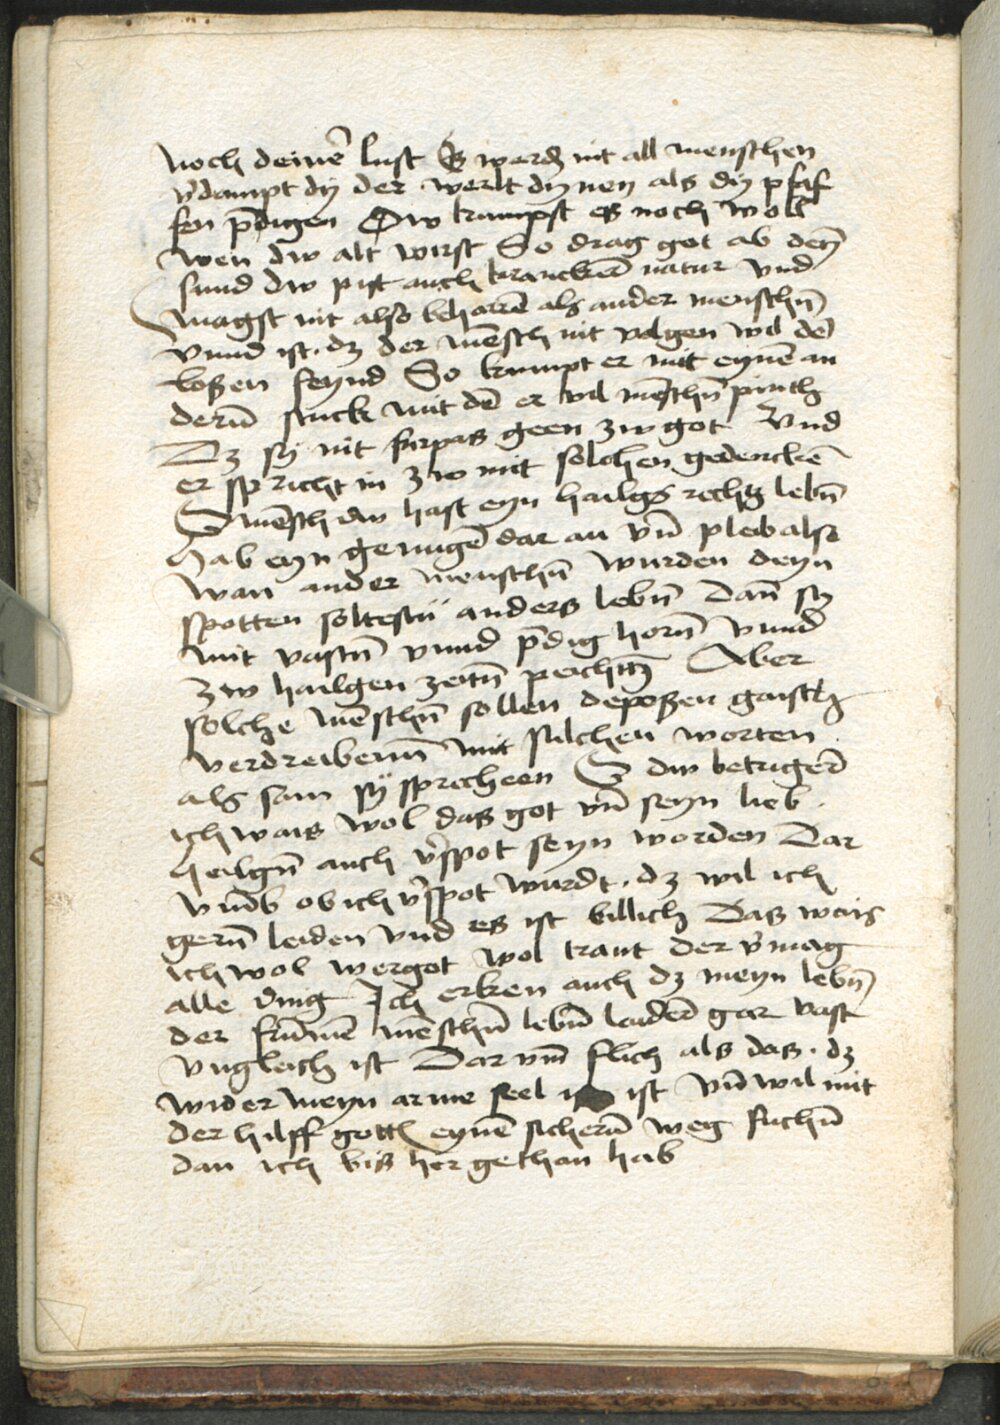 noch deinē lust Es werdē nit all menschen
v̄dampt dÿ der werlt dynen als dÿ pfaf
fen p̄digen Dw kumpst es noch woll
wen dw alt wirst So drag got ab deyn̄
sund dw pist auch kranckē natur vnd
magst nit also beharrē als ander menschn̄
vnnd ist. dz der mēsch nit volgen wil dē
boßen feynd So kumpt er mit eynē an
derū stuck mit dē er vil mēschn̄ pintt
Dz sÿ nit furpas geen zw got Vnd
er spricht in zw mit solchen gedenckē
O mēsch dw hast eyn hailgs rechtz lebn̄
Hab eyn genugē dar an vn̄ pleib also
wan ander menschn̄ wurden deyn
spotten soltestu anders lebn̄ Dan̄ sÿ
mit vastn̄ vnnd p̄dig horn̄ vnnd
zw hailgen zeitn̄ peichtn̄ Aber
solche mēschn̄ sollen depoßen gaist
verdreibenn̄ mit sulchen worten
als sam sÿ sprecheen O dw betrigerē
ich wais wol das got vn̄ seyn lieb
heilgn̄ auch v̄spot seyn worden Dar
vmb ob ich v̄spot wurdt. dz wil ich
gern̄ leiden vnd es ist billich Das wais
ich wol wer got wol traut der v̄mag
alle ding Ich erken auch dz meyn lebn̄
der frūmē mēschn̄ lebn̄ laiderē gar vast
vngleich ist Dar vm̄ flich als das. dz
wider meyn arme seel ist vn̄ wil mit
der hilff gotts eynē sichern̄ weg suchn̄
dan ich bis her gethan hab